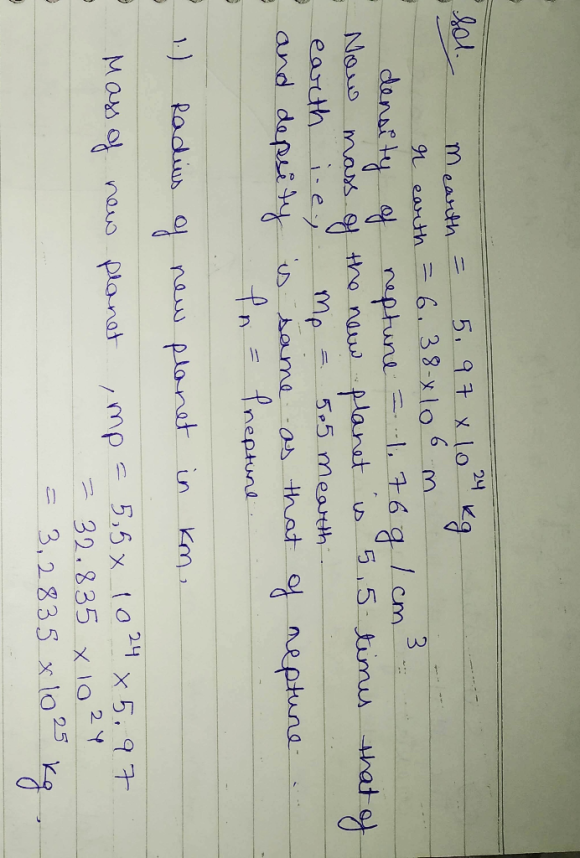 Sol.
m earth = 5.97 x 10²⁴ kg
r earth = 6.38 x 10⁶ m
density of neptune = 1.76 g/cm³
Now mass of the new planet is 5.5 times that of
earth i.e., mp = 5.5 m earth.
and depsity is same as that of neptune.
ρn = ρneptune.
1.) Radius of new planet in km.
Mass of new planet, mp = 5.5 x 10²⁴ x 5.97
= 32.835 x 10²⁴
= 3.2835 x 10²⁵ kg.